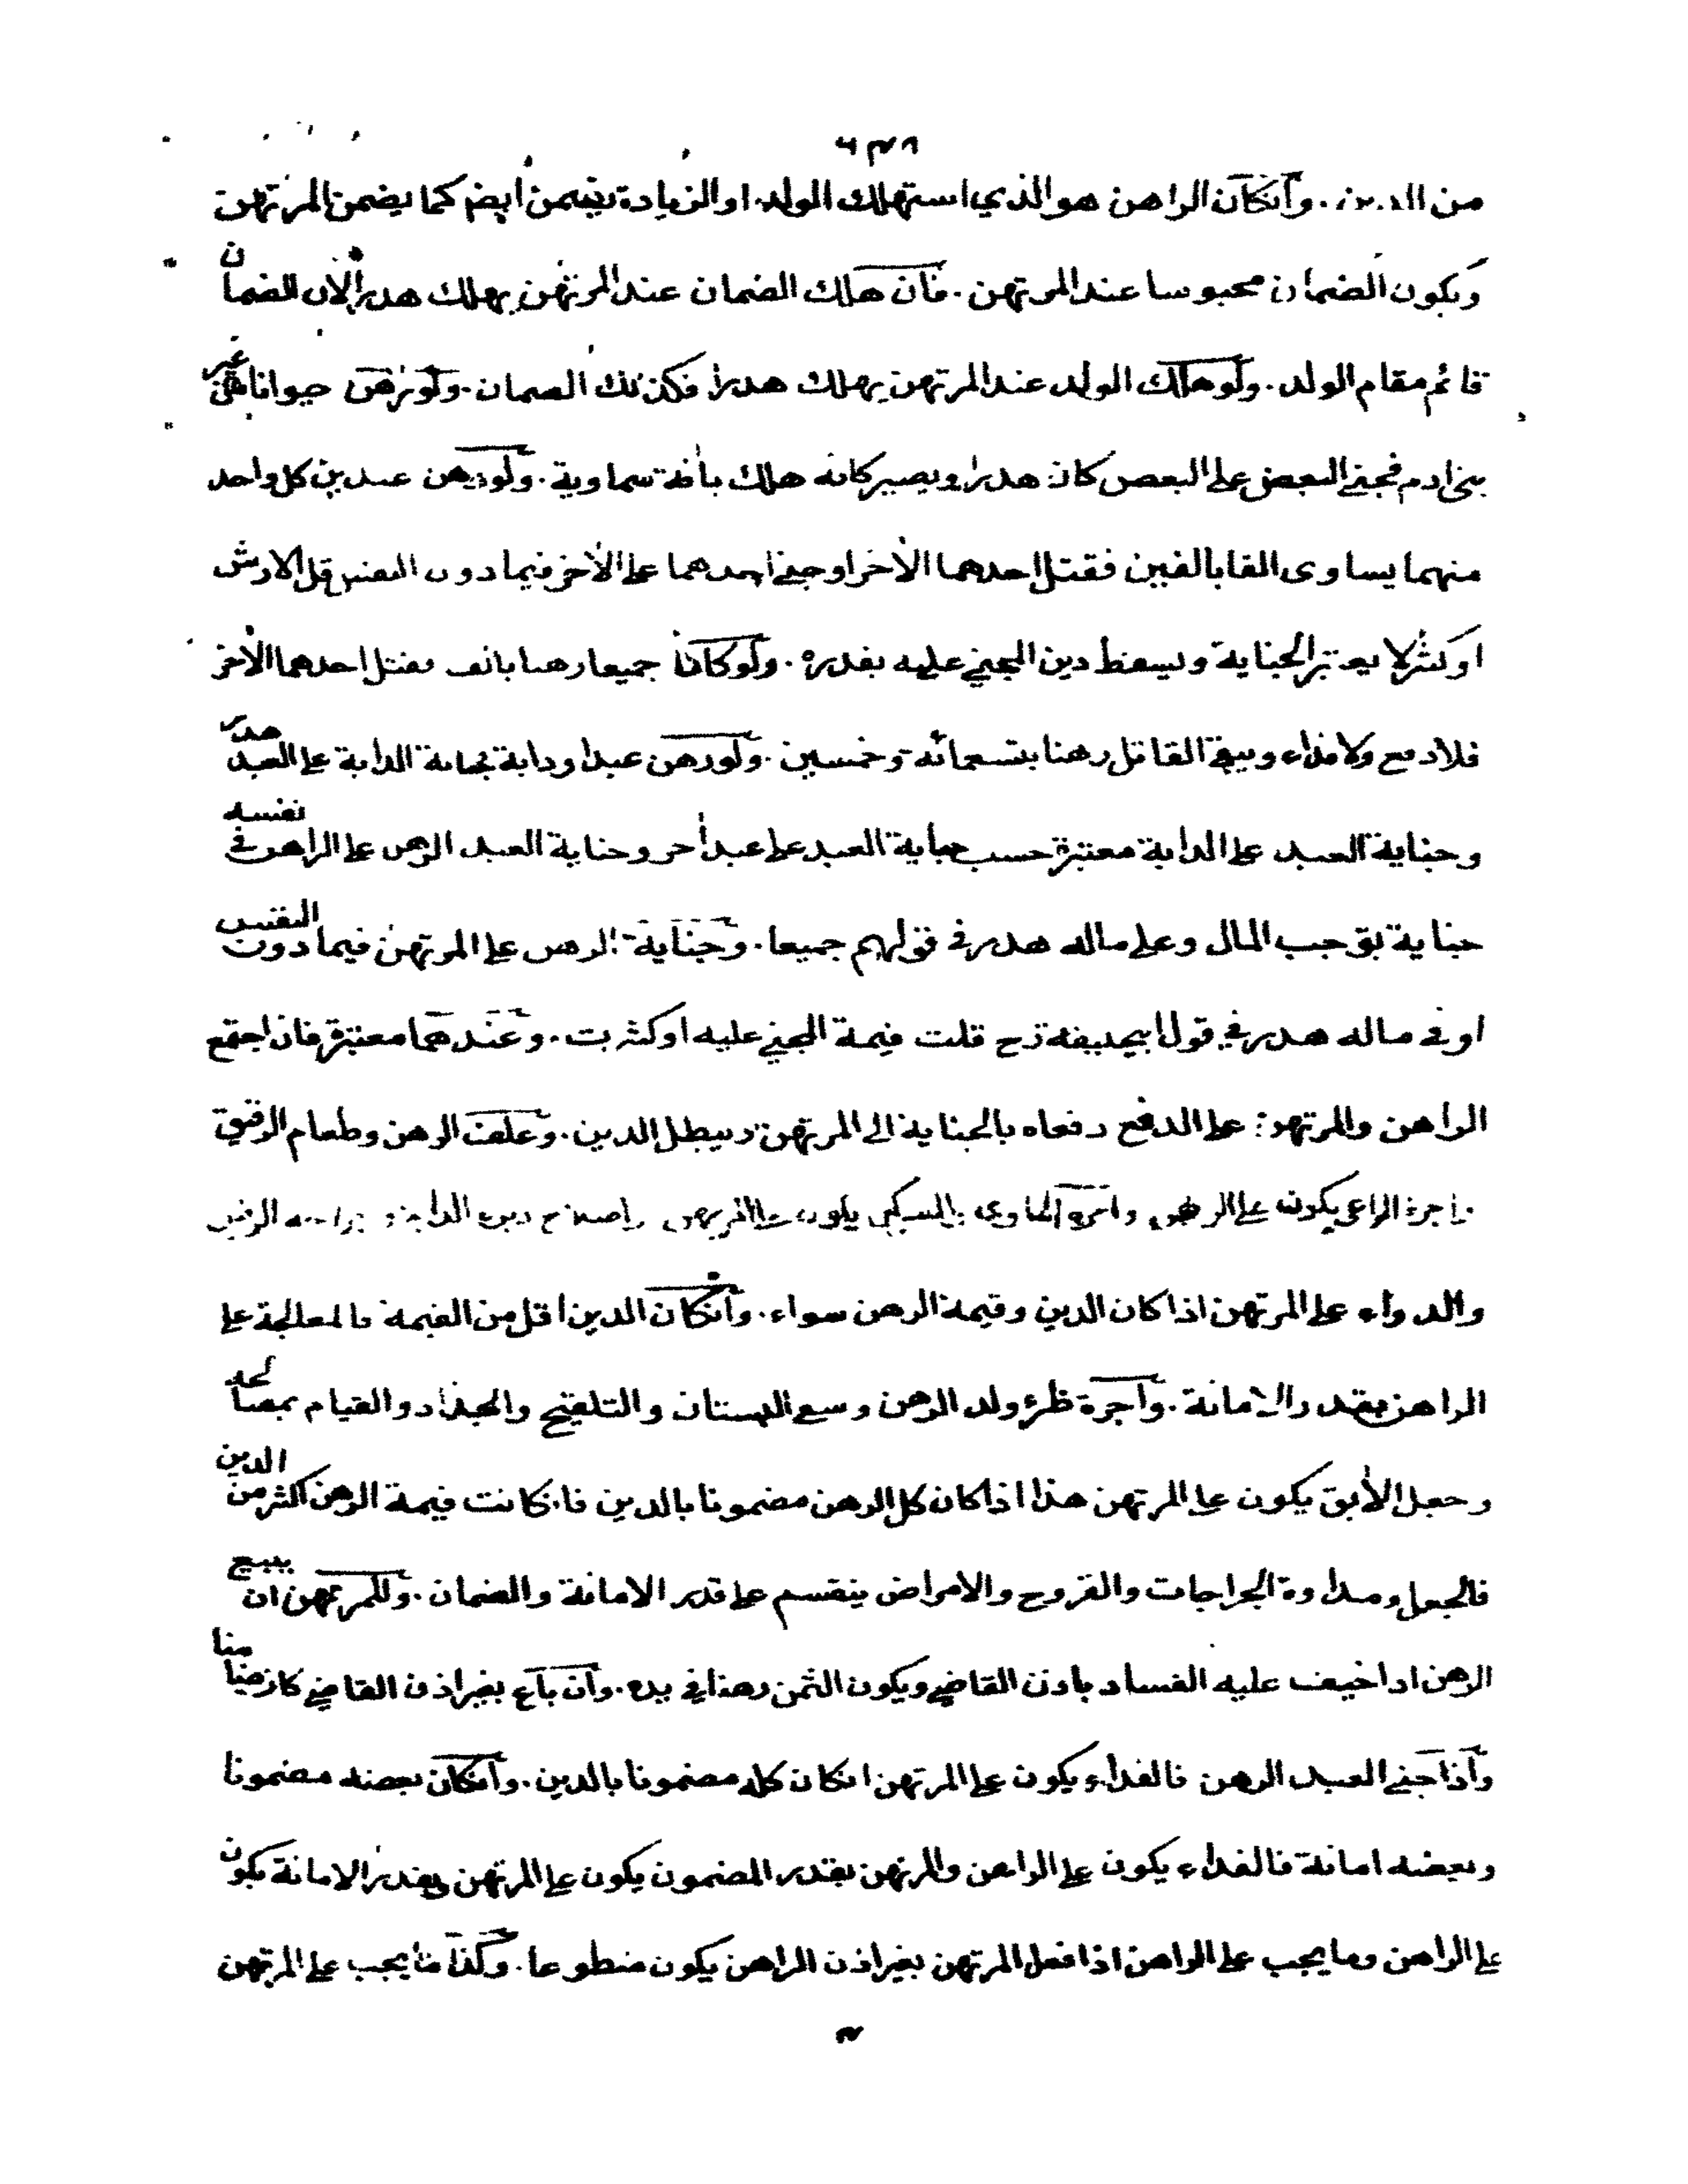 من الدين. وانكان الراهن هو الذي استهلك الولد او الزيادة يضمن ايضا كما يضمن المرتهن
ويكون الضمان محبوسا عند المرتهن. فان هلك الضمان عند المرتهن يهلك هدرا لان الضمان
قائم مقام الولد. ولو هلك الولد عند المرتهن يهلك هدرا فكذلك الضمان. ولو رهن حيوانا من غير
بني ادم فجنى البعض على البعض كان هدرا ويصير كانه هلك بأفة سماوية. ولو رهن عبدين كل واحد
منهما يساوى الفا بالفين فقتل احدهما الأخر او جنى احدهما على الأخر فيما دون النفس قل الارش
او كثر لا يعتبر الجناية ويسقط دين المجني عليه بقدره. ولو كانا جميعا رهنا بالف فقتل احدهما الأخر
فلا دفع ولا فداء ويبقى القاتل رهنا بتسعمائة وخمسين. ولو رهن عبدا ودابة فجناية الدابة على العبد هدر
وجناية العبد على الدابة معتبرة حسب جناية العبد على عبد أخر وجناية العبد الرهن على الراهن في نفسه
جناية توجب المال وعلى ماله هدر في قولهم جميعا. وجناية الرهن على المرتهن فيما دون النفس
او في ماله هدر في قول ابيحنيفة رح قلت قيمة المجني عليه او كثرت. وعندهما معتبرة فان اجتمع
الراهن والمرتهن على الدفع دفعاه بالجناية الى المرتهن ويبطل الدين. وعلف الرهن وطعام الرقيق
واجرة الراعي يكون على الراهن واجرة المأوى والسكنى يكون على المرتهن واصلاح دبرة الدابة و الرقيق
والدواء على المرتهن اذا كان الدين وقيمة الرهن سواء. وانكان الدين اقل من القيمة فالمعالجة على
الراهن بقدر الامانة. واجرة ظئر ولد الرهن وسقي البستان والتلقيح والجذاد والقيام بمصالحه
وجعل الأبق يكون على المرتهن هذا اذا كان كل الرهن مضمونا بالدين فانكانت قيمة الرهن اكثر من الدين
فالجعل ومداوة الجراحات والقروح والامراض ينقسم على قدر الامانة والضمان. وللمرتهن ان يبيع
الرهن اذا خيف عليه الفساد باذن القاضي ويكون الثمن رهنا في يده. وان باع بغير اذن القاضي كان ضامنا
واذا جنى العبد الرهن فالفداء يكون على المرتهن انكان كله مضمونا بالدين. وانكان بعضه مضمونا
وبعضه امانة فالفداء يكون على الراهن والمرتهن بقدر المضمون يكون على المرتهن وبقدر الامانة يكون
على الراهن وما يجب على الراهن اذا فعل المرتهن بغير اذن الراهن يكون متطوعا. وكذا ما يجب على المرتهن